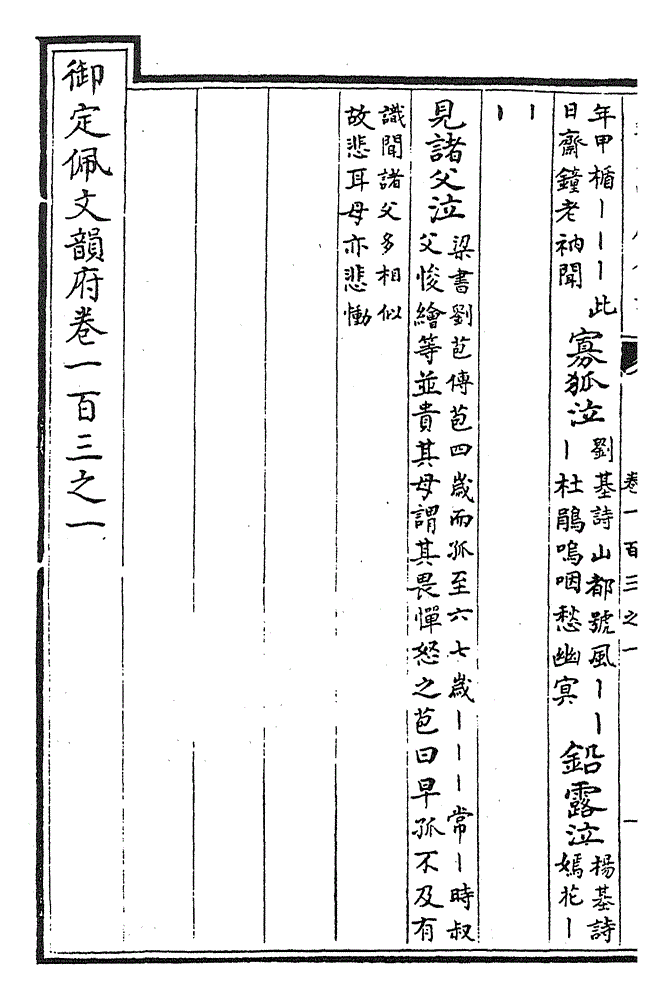 卷一百三之一
一
年甲楯丨丨丨此
日齋鐘老衲聞
寡狐泣
劉基詩山都號風丨丨
丨杜鵑嗚咽愁幽冥
鉛露泣
楊基詩
嫣花丨
丨
丨
見諸父泣
梁書劉苞傳苞四歲而孤至六七歲丨丨丨常丨時叔
父悛繪等並貴其母謂其畏憚怒之苞曰早孤不及有
識聞諸父多相似
故悲耳母亦悲慟
御定佩文韻府卷一百三之一